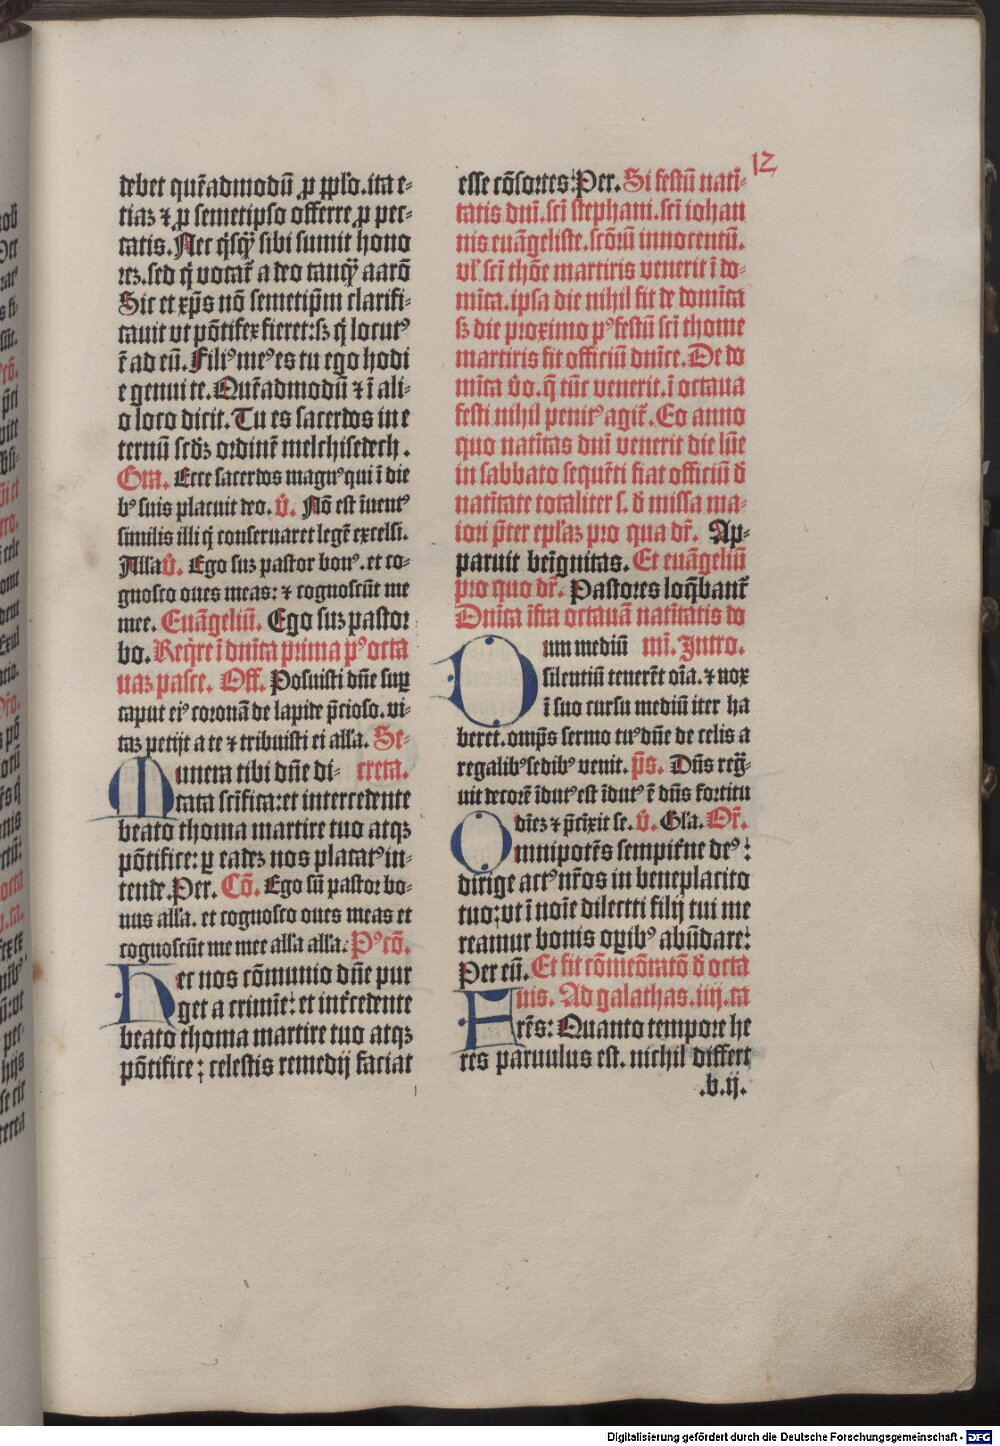 debet quẽadmodũ ꝓ ppl̃o. ita e-
tiaꝫ ⁊ ꝓ semetipso offerre ꝓ pec-
catis. Nec q̃sq̃ꝫ sibi sumit hono
reꝫ. sed q̃ vocat᷑ a deo tanq̃ꝫ aarõ
Sic et xp̃s nõ semetip̃m clarifi-
cauit vt põtifex fieret: sꝫ q̃ locutꝰ
ẽ ad eũ. Filiꝰ meꝰ es tu ego hodi
e genui te. Quẽadmodũ ⁊ ĩ ali-
o loco dicit. Tu es sacerdos in e
ternũ scd̃ꝫ ordinẽ melchisedech.
Gra. Ecce sacerdos magnꝰ qui ĩ die
bꝰ suis placuit deo. ṽ. Nõ est ĩuentꝰ
similis illi q̃ conseruaret legẽ excelsi.
Alla ṽ. Ego suꝫ pastor bonꝰ. et co-
gnosco oues meas: ⁊ cognoscũt me
mee. Euãgeliũ. Ego suꝫ pastor
bo. Req̃re ĩ dnĩca prima pꝰ octa
uaꝫ pasce. Off. Posuisti dñe suꝑ
caput eiꝰ coronã de lapide p̃cioso. vi-
taꝫ petijt a te ⁊ tribuisti ei alla. Se-
Munera tibi dñe di- creta.
cata scĩfica: et intercedente
beato thoma martire tuo atqꝫ
põtifice: ꝑ eadeꝫ nos placatꝰ in-
tende. Per. Cõ. Ego sũ pastor bo-
nus alla. et cognosco oues meas et
cognoscũt me mee alla alla. Pꝰcõ.
Hec nos cõmunio dñe pur
get a crimĩe: et int̃cedente
beato thoma martire tuo atqꝫ
põtifice: celestis remedij faciat
esse cõsortes: Per. Si festũ nati-
tatis dñi. scĩ stephani. scĩ iohan
nis euãgeliste. scõrũ innocentũ.
vl̃ scĩ thõe martiris venerit ĩ do-
mĩca. ipsa die nihil fit de domĩca
sꝫ die proximo pꝰ festũ scĩ thome
martiris fit officiũ dnĩce. De do
mĩca ṽo. q̃ tũc venerit. ĩ octaua
festi nihil penitꝰ agit᷑. Eo anno
quo natĩtas dñi venerit die lũe
in sabbato sequẽti fiat officiũ d̃
natĩtate totaliter s. d̃ missa ma-
iori p̃ter ep̃laꝫ pro qua dr̃. Ap-
paruit beĩgnitas. Et euãgeliũ
pro quo dr̃. Pastores loq̃bant᷑
Dnĩca ĩfra octauã natĩtatis do
Dum mediũ mĩ. Intro.
silentiũ tenerẽt oĩa. ⁊ nox
ĩ suo cursu mediũ iter ha
beret. omp̃s sermo tuꝰ dñe de celis a
regalibꝰ sedibꝰ venit. p̃s. Dñs reg̃-
uit decorẽ ĩdutꝰ est ĩdutꝰ ẽ dñs fortitu
dĩeꝫ ⁊ p̃cĩxit se. ṽ. Gla. Or̃.
Omnipotẽs sempit̃ne deꝰ:
dirige actꝰ nr̃os in beneplacito
tuo: vt ĩ noĩe dilectti filij tui me
reamur bonis oꝑibꝰ abũdare:
Per eũ. Et fit cõmeõratõ d̃ octa
uis. Ad galathas. iiij. ca
Frẽs: Quanto tempore he
res paruulus est. nichil differt
.b.ij.
12
Digitalisierung gefördert durch die Deutsche Forschungsgemeinschaft - DFG